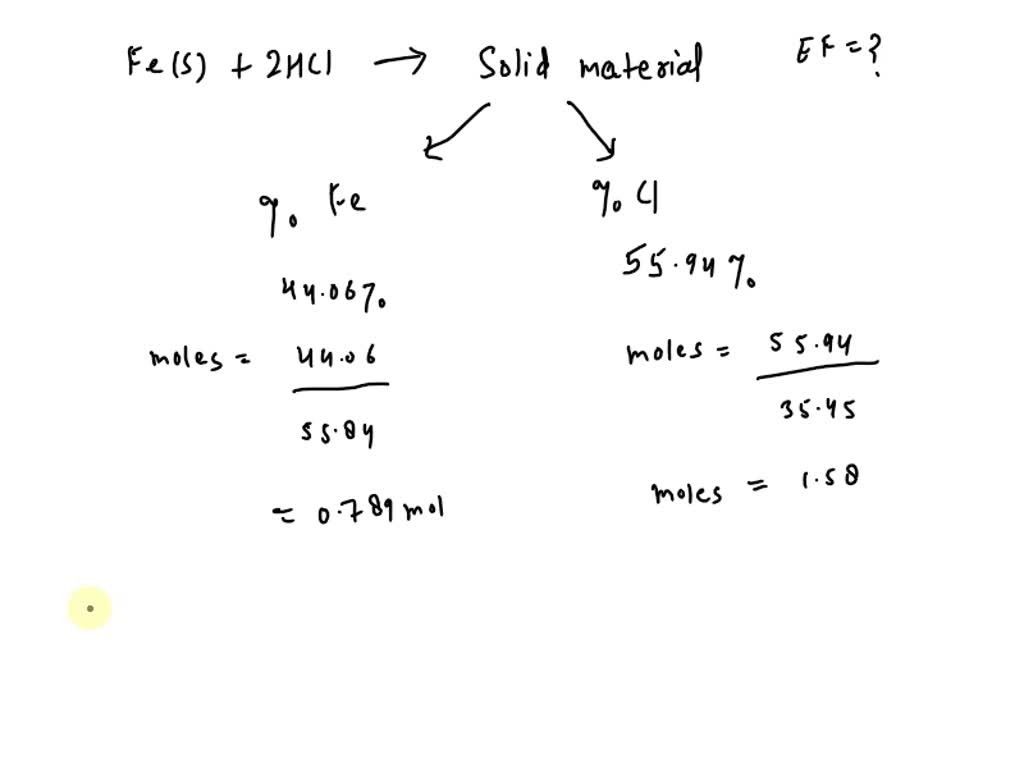 Fe(s) + 2HCl → Solid material EF = ?
%. Fe %. Cl
44.06%. 55.94%.
moles = 44.06 / 55.84 moles = 55.94 / 35.45
= 0.789 mol moles = 1.58